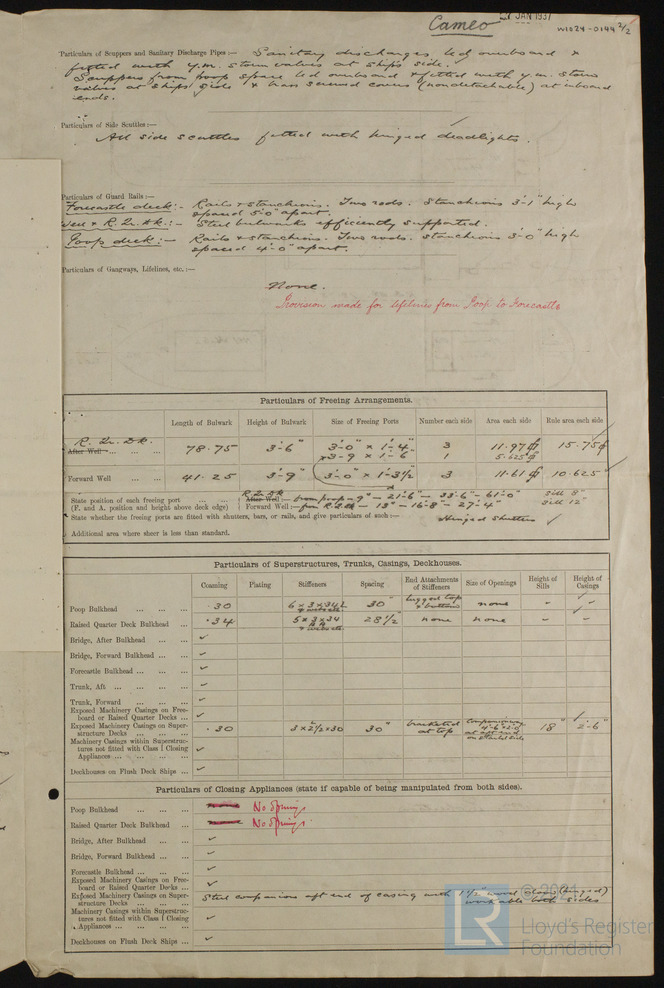 Cameo
JAN 1937
W1024-0144 2/2
Particulars of Scuppers and Sanitary Discharge Pipes:— Sanitary discharges led overboard &
fitted with y.m. storm valves at ships side.
Scuppers from poop space led overboard & fitted with y.m. storm
valves at ships side & brass screwed covers (nondetachable) at inboard
ends.
Particulars of Side Scuttles:—
All side scuttles fitted with hinged deadlights.
Particulars of Guard Rails:—
Forecastle deck:- Rails & stanchions. Two rods. Stanchions 3'-1" high
spaced 5'-0" apart.
Well & R. Qr. dk:- Steel bulwarks efficiently supported.
Poop deck:- Rails & stanchions. Two rods. Stanchions 3'-0" high
spaced 4'-0" apart.
Particulars of Gangways, Lifelines, etc.:—
None.
Provision made for lifelines from Poop to Forecastle
Particulars of Freeing Arrangements.
Length of Bulwark Height of Bulwark Size of Freeing Ports Number each side Area each side Rule area each side
R. Qr. Dk.
After Well 78.75 3'-6" 3'-0" x 1'-4" 3 11.97 15.75
3-9 x 1'-6" 1 5.625
Forward Well 41.25 3'-9" 3'-0" x 1'-3½" 3 11.61 10.625
State position of each freeing port
(F. and A. position and height above deck edge)
R. Qr. dk
After Well:— from poop - 9" - 21'-6" - 33'-6" - 61'-0" Sill 8"
Forward Well:— from R.Q.dk - 13" - 16'-8" - 27'-4" Sill 12"
State whether the freeing ports are fitted with shutters, bars, or rails, and give particulars of each:— Hinged Shutters
Additional area where sheer is less than standard.
Particulars of Superstructures, Trunks, Casings, Deckhouses.
Coaming Plating Stiffeners Spacing End Attachments of Stiffeners Size of Openings Height of Sills Height of Casings
Poop Bulkhead .30 6 x 3 x 34 30" lugged top & bottom none
Raised Quarter Deck Bulkhead .34 5 x 3 x 34 28½" none none
Bridge, After Bulkhead
Bridge, Forward Bulkhead
Forecastle Bulkhead
Trunk, Aft
Trunk, Forward
Exposed Machinery Casings on Freeboard or Raised Quarter Decks
Exposed Machinery Casings on Superstructure Decks .30 3 x 2½ x 30 30" bracketed at top 18" 2'-6"
Machinery Casings within Superstructures not fitted with Class I Closing Appliances
Deckhouses on Flush Deck Ships
Particulars of Closing Appliances (state if capable of being manipulated from both sides).
Poop Bulkhead No openings
Raised Quarter Deck Bulkhead No openings
Bridge, After Bulkhead
Bridge, Forward Bulkhead
Forecastle Bulkhead
Exposed Machinery Casings on Freeboard or Raised Quarter Decks
Exposed Machinery Casings on Superstructure Decks Steel companion aft end of casing with 1½" wood doors (hinged)
workable both sides
Machinery Casings within Superstructures not fitted with Class I Closing Appliances
Deckhouses on Flush Deck Ships
LR
Lloyd's Register
Foundation